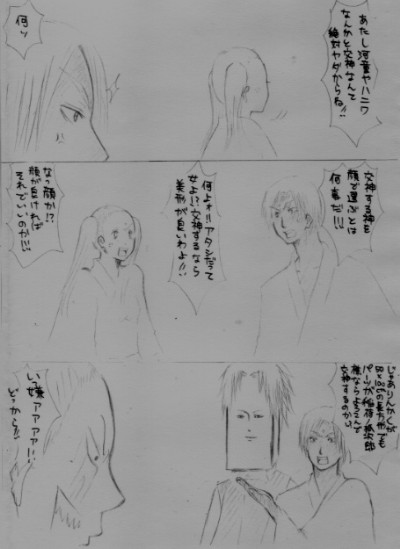 あたし河童やハニワ
なんかと交神なんて
絶対ヤダからね!!
何ッ
交神する神を
顔で選ぶとは
何事だ!!!
何よォ!!アタシだって
女よ!?交神するなら
美形が良いわよ!!
なっ顔か!?
顔が良ければ
それでいいのか!!!
じゃありんかくが
50×100の長方形でも
パーツが
様ならよろこんで
交神するのかい
いっ嫌アアアア!!
どっから!!